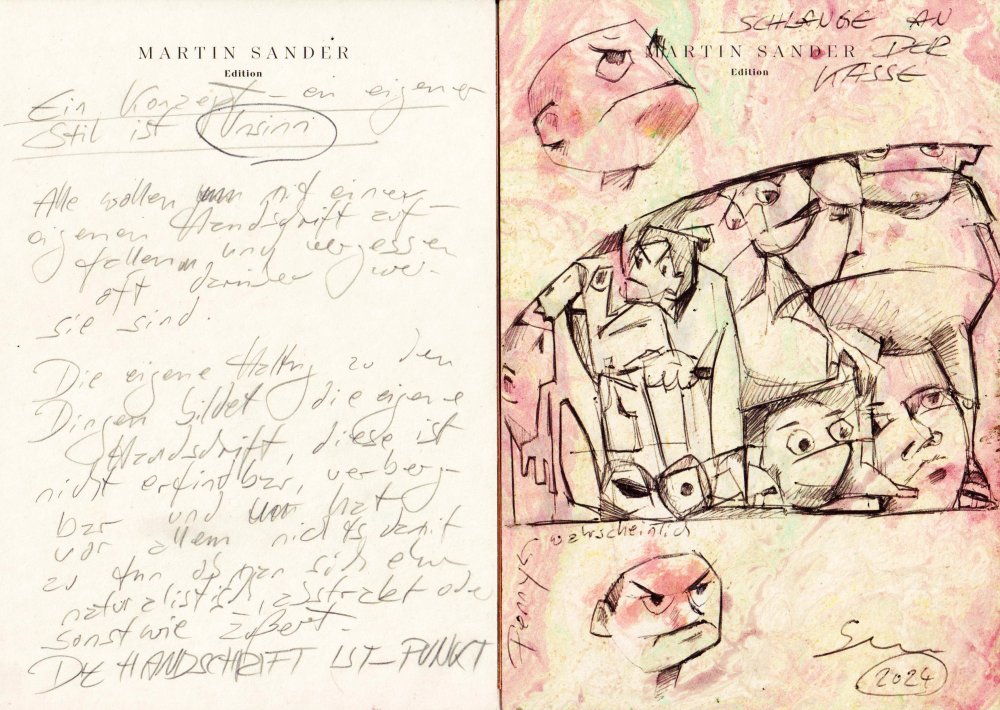 MARTIN SANDER
Edition
Ein Konzept – en eigener
Stil ist Unsinn
Alle wollen nur mit einer
eigenen Handschrift auf-
fallen, und vergessen
oft darüber wer
sie sind.
Die eigene Haltung zu den
Dingen bildet die eigene
Handschrift, diese ist
nicht erfindbar, verberg-
bar und hat
vor allem nichts damit
zu tun ob man sich etwa
naturalistisch, abstrakt oder
sonstwie äußert.
DIE HANDSCHRIFT IST – PUNKT
MARTIN SANDER
Edition
SCHLANGE AN
DER
KASSE
wahrscheinlich
Penny
2024